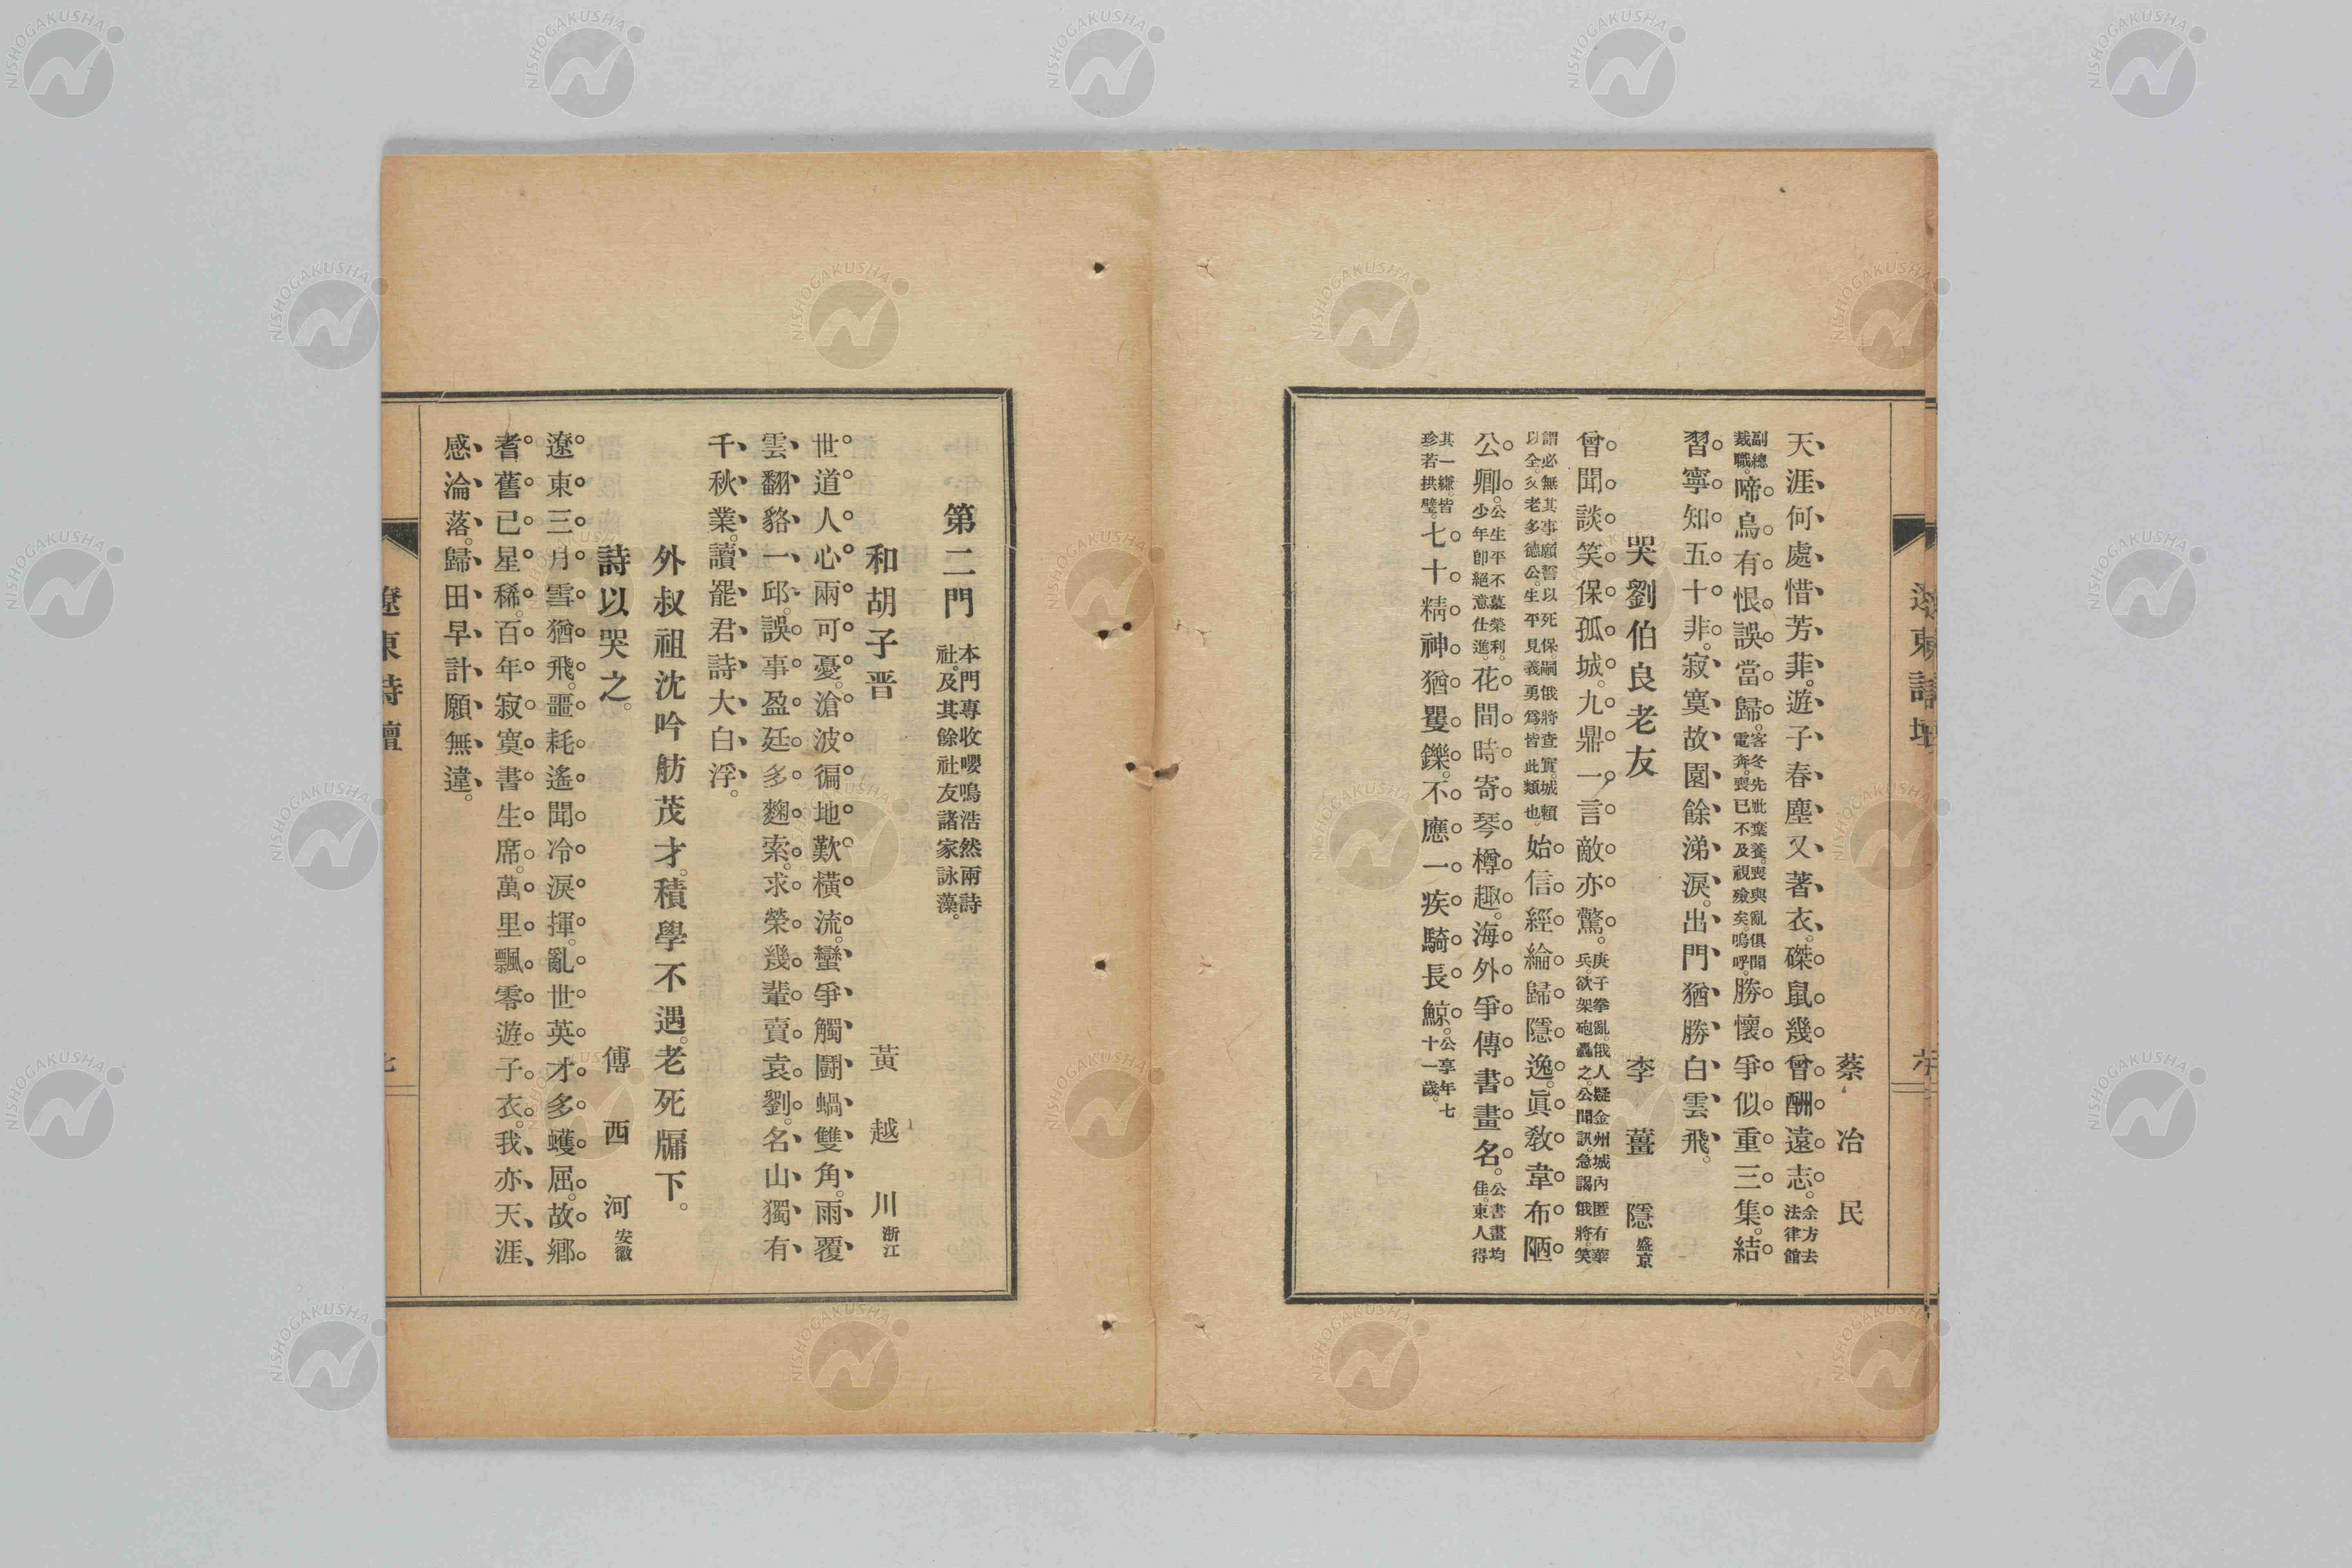 蔡冶民
天涯何處惜芳菲。遊子春塵又著衣。磔鼠幾曾酬遠志。余方去法律館
副總裁職。啼烏有恨誤當歸。客冬先妣棄養。喪與亂俱聞電奔。喪已不及視殮矣。嗚呼。勝懷爭似重三集。結
習寧知五十非。寂寞故園餘涕淚。出門猶勝白雲飛。
哭劉伯良老友　李薑隱盛京
曾聞談笑保孤城。九鼎一言敵亦驚。庚子拳亂。俄人疑金州城內匿有華兵。欲架砲轟之。公聞訊。急謁俄將。笑
謂必無其事願誓以死保。嗣俄將查實。城賴以全。久老多德公。生平見義勇爲皆此類也。始信經綸歸隱逸。眞敎韋布陋
公卿。公生平不慕榮利。少年卽絕意仕進。花間時寄琴樽趣。海外爭傳書畫名。公書畫均佳。東人得
其一縑。皆珍若拱璧。七十精神猶矍鑠。不應一疾騎長鯨。公享年七十一歲。
遼東詩壇
第二門　本門專收嚶鳴浩然兩詩社。及其餘社友諸家詠藻。
和胡子晋　黃越川浙江
世道人心兩可憂。滄波徧地歎橫流。蠻爭觸鬪蝸雙角。雨覆
雲翻貉一邱。誤事盈廷多麴索。求榮幾輩賣袁劉。名山獨有
千秋業。讀罷君詩大白浮。
外叔祖沈吟舫茂才。積學不遇。老死牖下。
詩以哭之。　傅西河安徽
遼東三月雪猶飛。噩耗遙聞冷淚揮。亂世英才多蠖屈。故鄕
耆舊已星稀。百年寂寞書生席。萬里飄零遊子衣。我亦天涯
感淪落。歸田早計願無違。
遼東詩壇
七